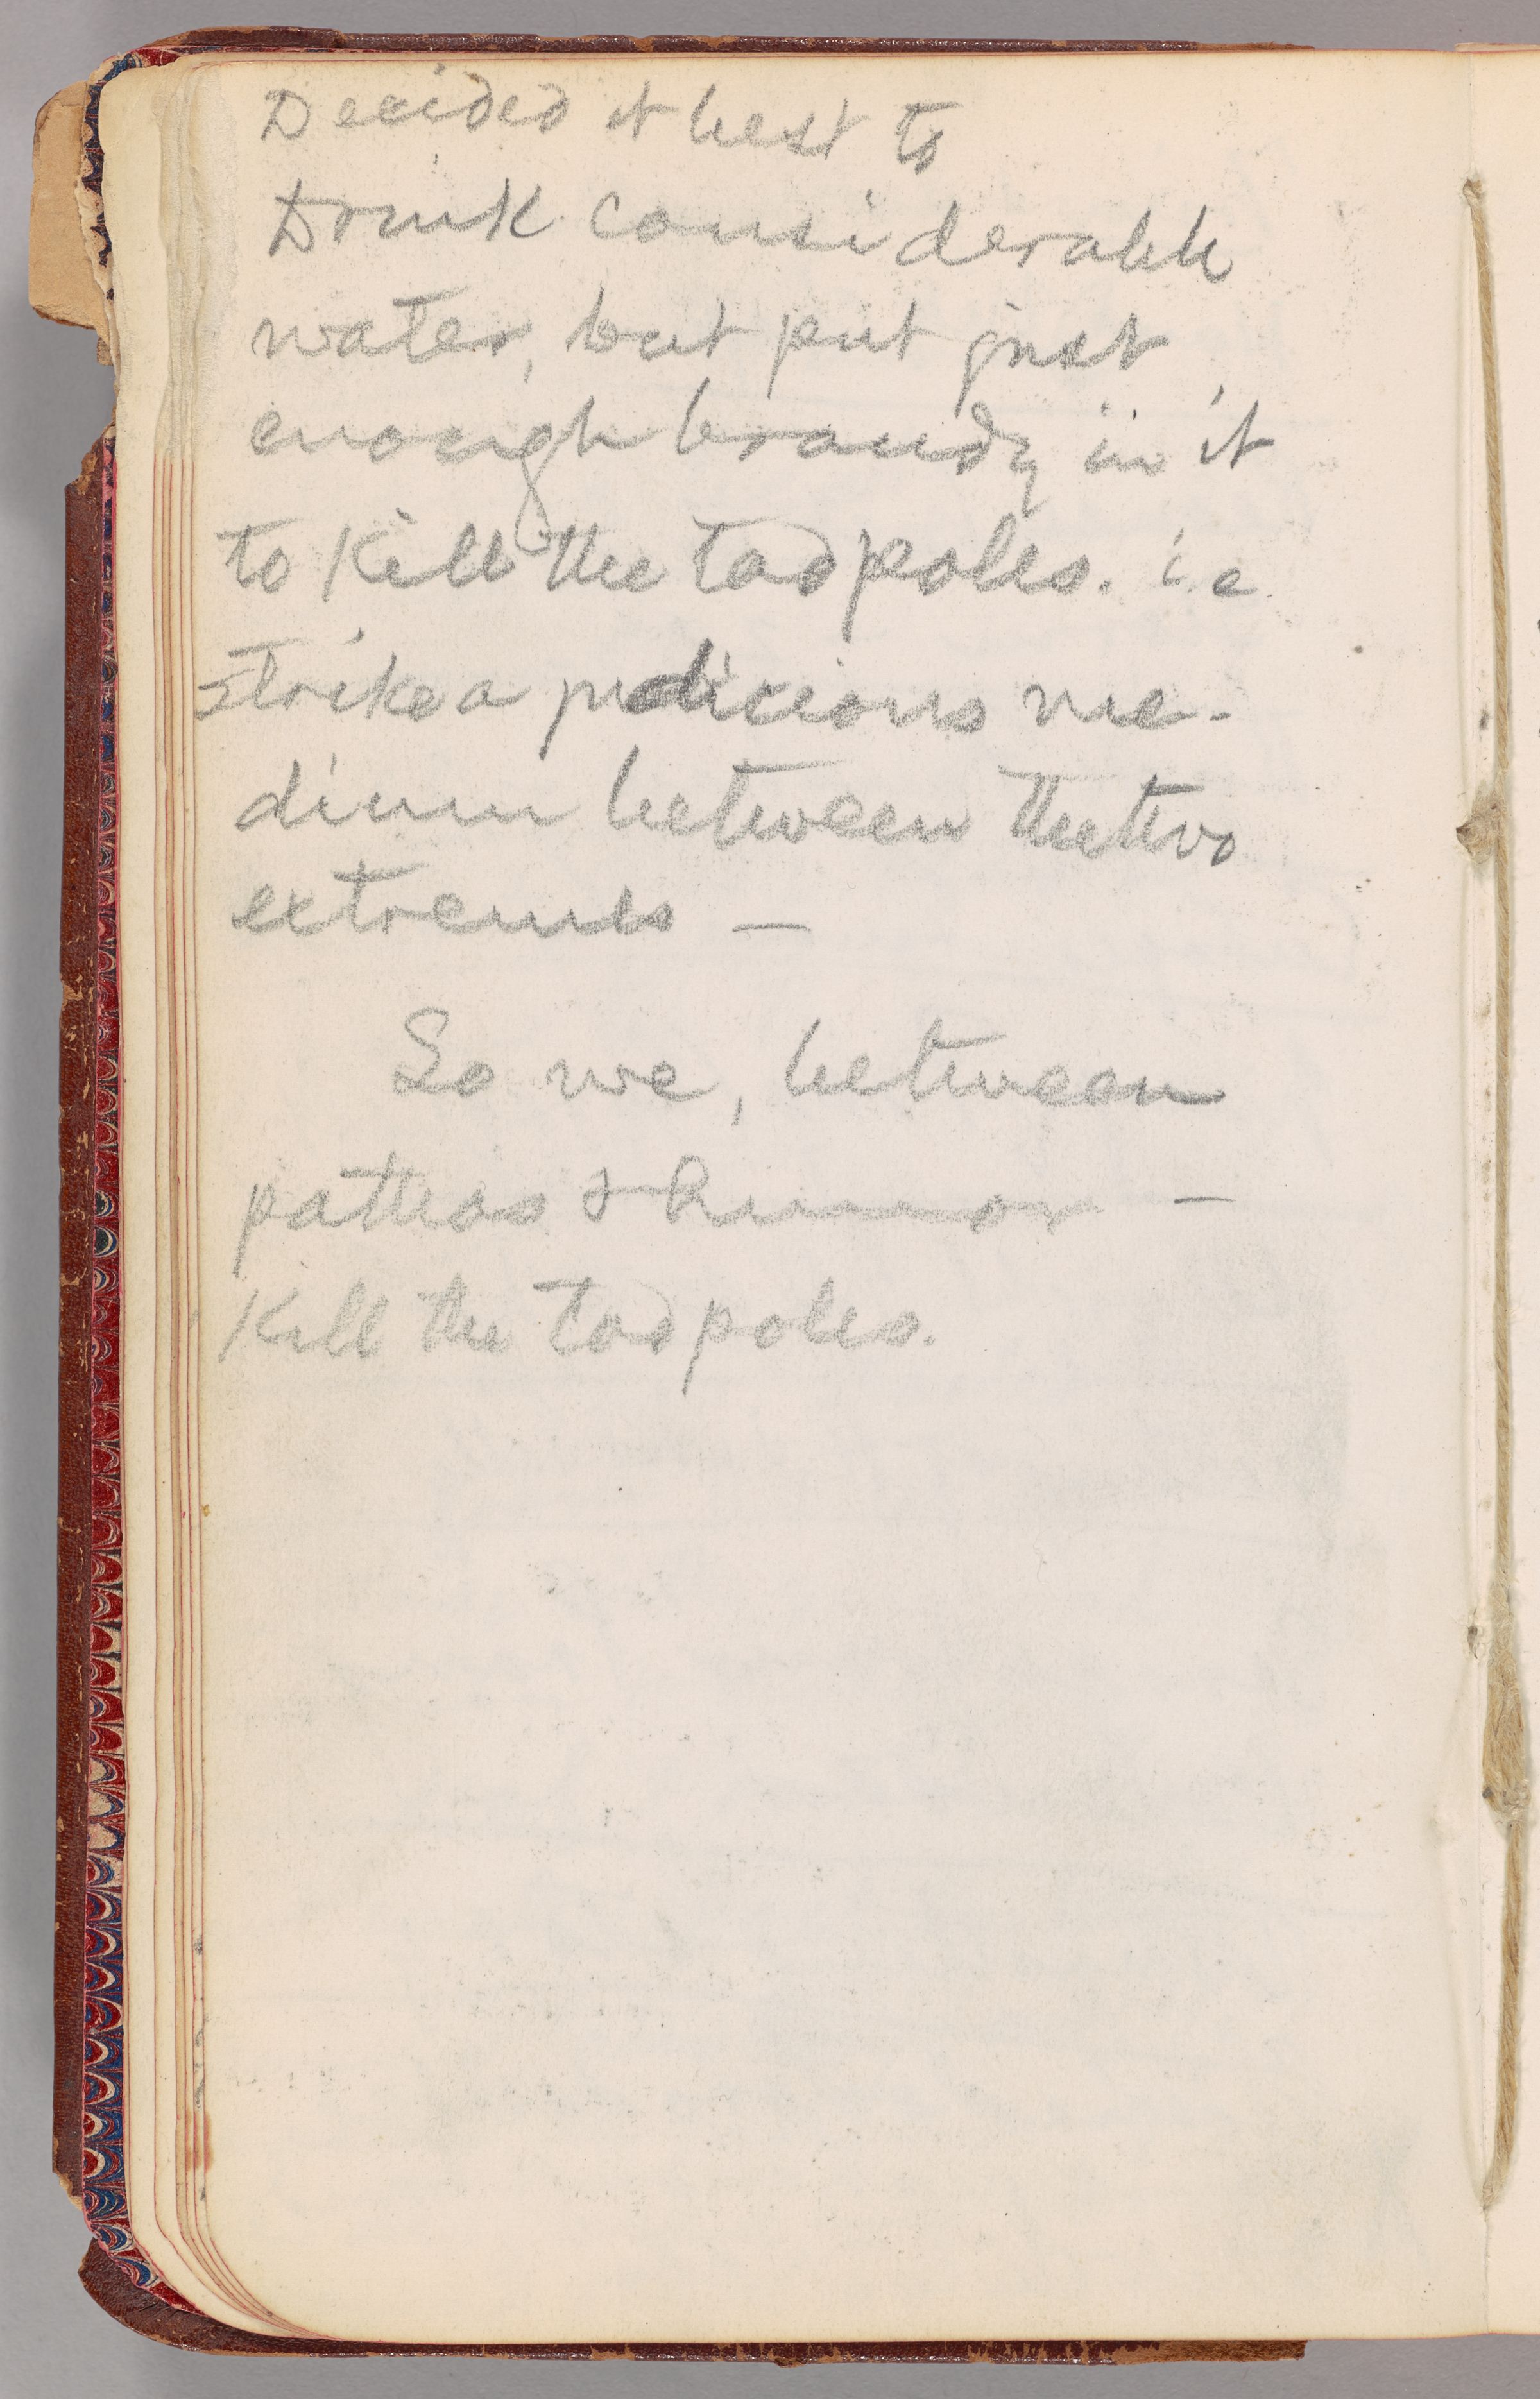 Decided it best to
Drink considerable
water, but put just
enough brandy in it
to Kill the tadpoles. i.e.
strike a judicious me-
dium between the two
extremes —
So we, between
pathos & humor —
Kill the tadpoles.